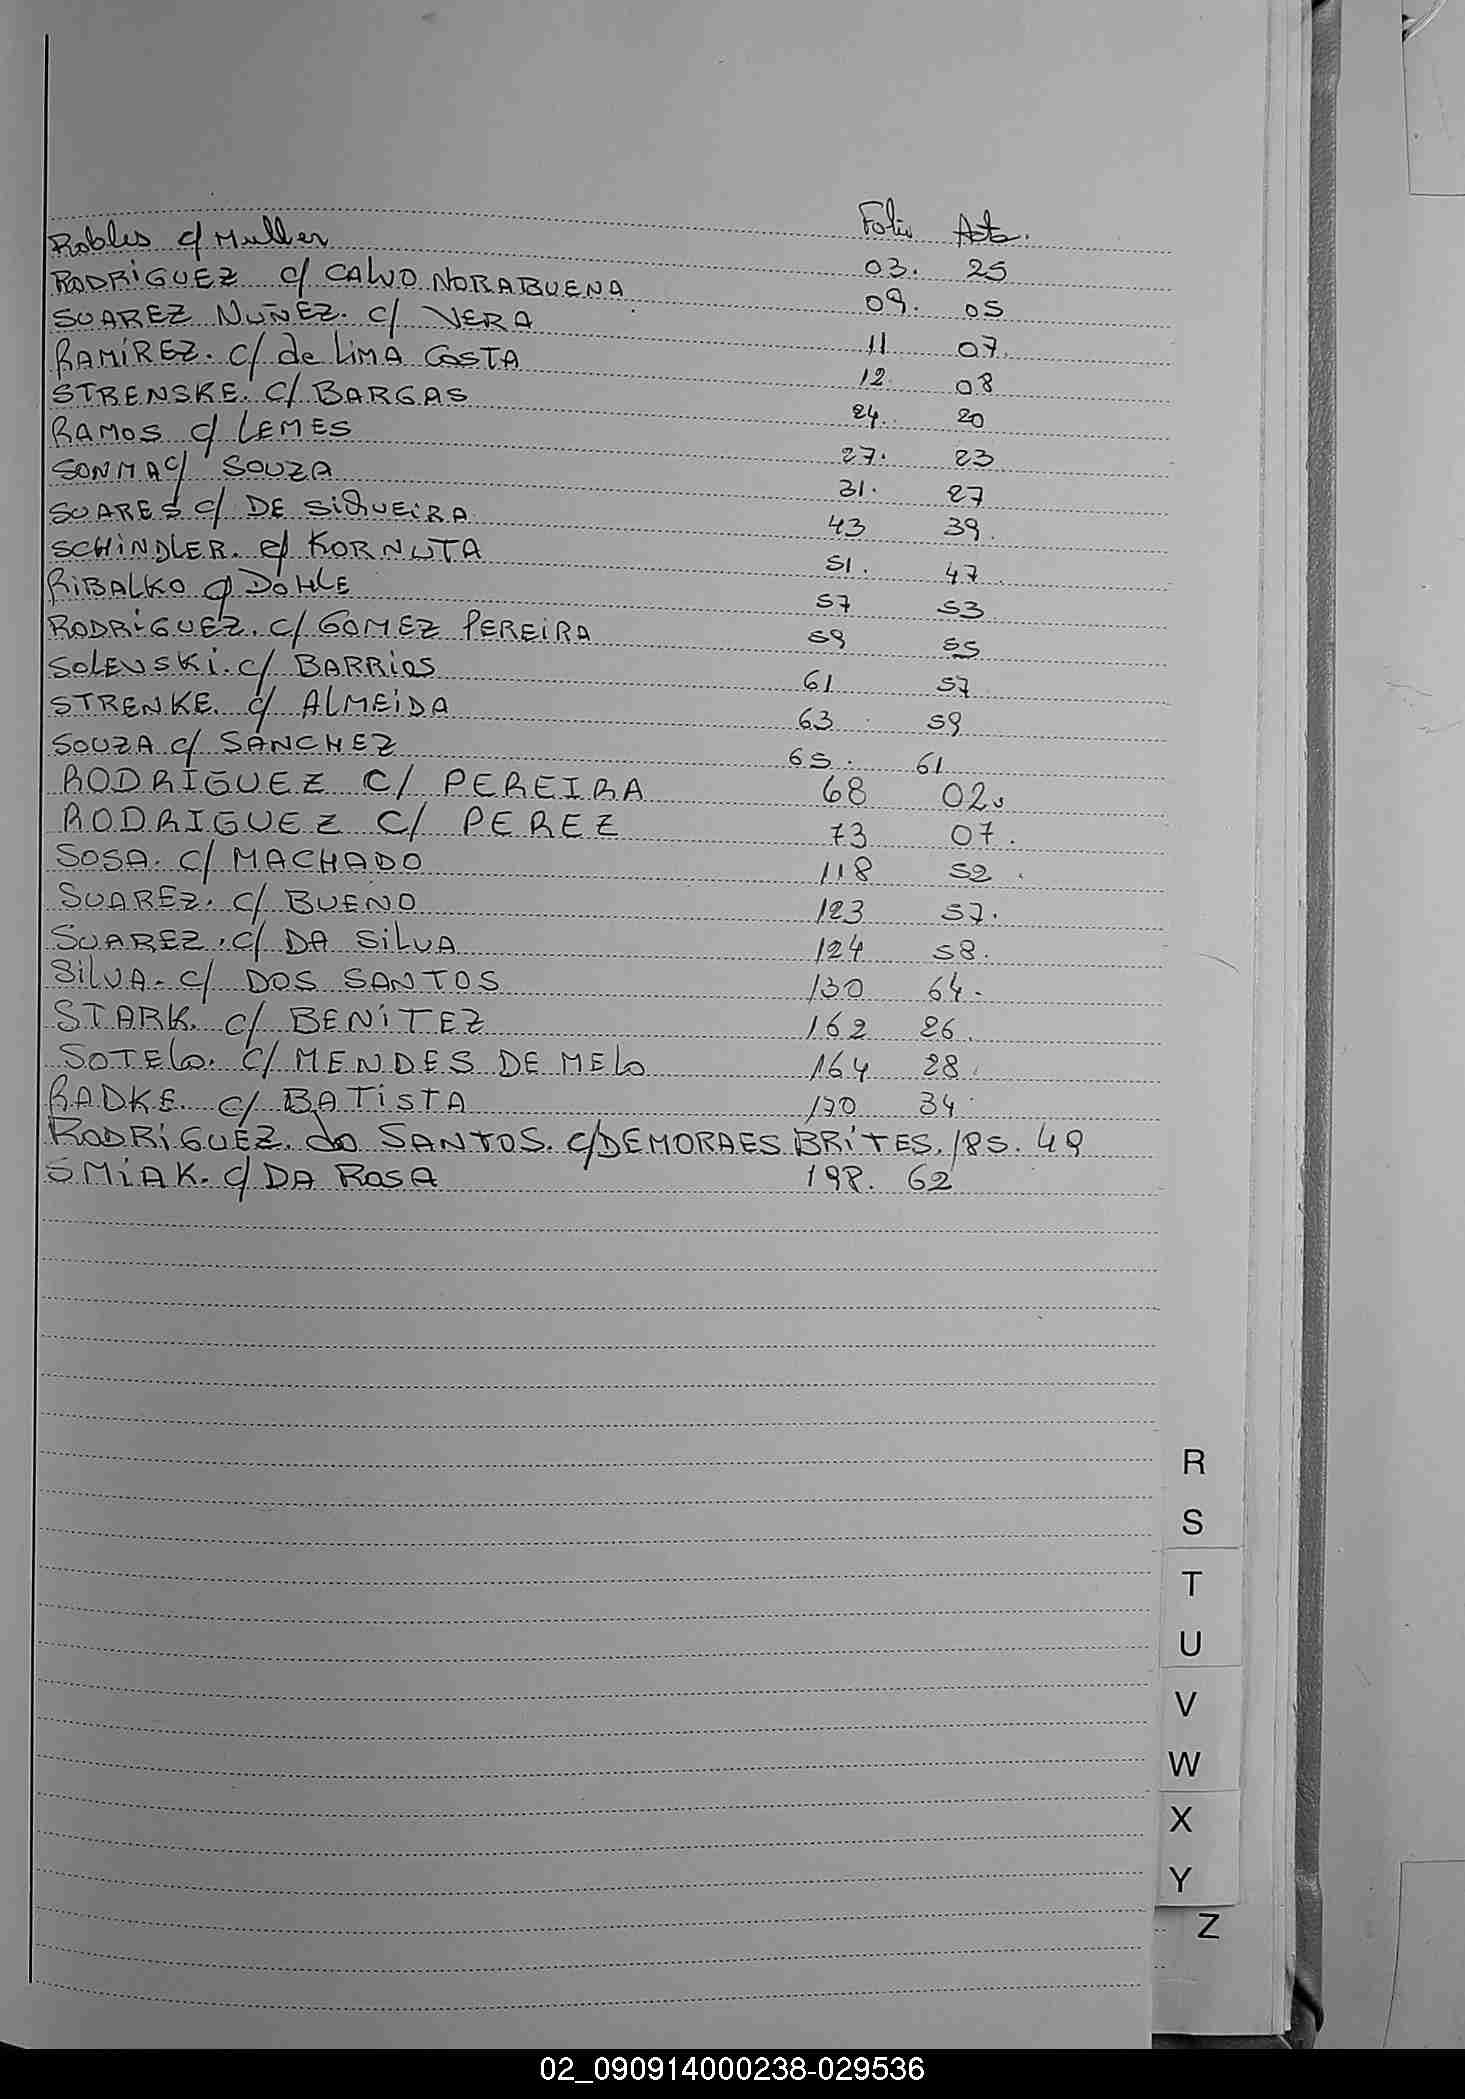 Folio Acta.
Robles c/ Muller 03. 25
RODRIGUEZ c/ CALVO NORABUENA 09. 05
SUAREZ NUÑEZ. c/ VERA 11 07.
RAMÍREZ. c/ de LIMA COSTA 12 08
STRENSKE. c/ BARGAS 24. 20
RAMOS c/ LEMES 27. 23
SONMA c/ SOUZA 31. 27
SUARES c/ DE SIQUEIRA 43 39.
SCHINDLER. c/ KORNUTA 51. 47
RIBALKO c/ DOHLE 57 53
RODRIGUEZ. c/ GOMEZ PEREIRA 59 55
SOLEVSKI. c/ BARRIOS 61 57
STRENKE. c/ ALMEIDA 63 59
SOUZA c/ SANCHEZ 65. 61
RODRIGUEZ C/ PEREIRA 68 02.
RODRIGUEZ C/ PEREZ 73 07.
SOSA. C/ MACHADO 118 52.
SUAREZ. C/ BUENO 123 57.
SUAREZ. C/ DA SILVA 124 58.
SILVA. C/ DOS SANTOS 130 64.
STARK. C/ BENITEZ 162 26.
SOTELO. C/ MENDES DE MELO 164 28.
RADKE. C/ BATISTA 170 34
RODRÍGUEZ. do SANTOS. C/ DE MORAES BRITES. 185. 49
SMIAK. c/ DA ROSA 198. 62
R
S
T
U
V
W
X
Y
Z
02_090914000238-029536